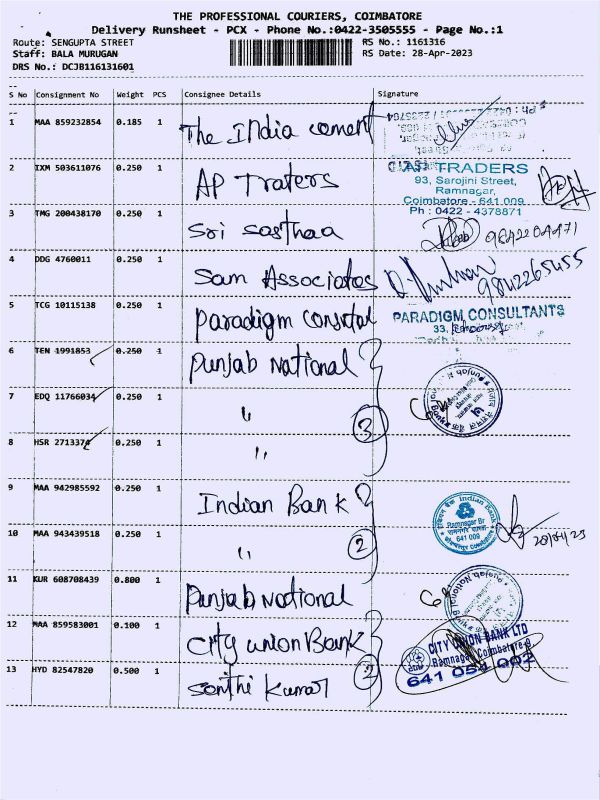 THE PROFESSIONAL COURIERS, COIMBATORE
Delivery Runsheet - PCX - Phone No.:0422-3505555 - Page No.:1
Route: SENGUPTA STREET RS No.: 1161316
Staff: BALA MURUGAN RS Date: 28-Apr-2023
DRS No.: DCJB116131601
S No Consignment No Weight PCS Consignee Details Signature
1 MAA 859232854 0.185 1 The India cement
2 IXM 503611076 0.250 1 AP Traters
AP TRADERS
93, Sarojini Street,
Ramnagar,
Coimbatore - 641 009
Ph : 0422 - 4378871
3 TMG 200438170 0.250 1 Sri Sasthaa
4 DDG 4760011 0.250 1 Sam Associates 9842265455
5 TCG 10115138 0.250 1 Paradigm
PARADIGM CONSULTANTS
33,
6 TEN 1991853 0.250 1 Punjab National
7 EDQ 11766034 0.250 1 " 3
8 HSR 2713374 0.250 1 "
9 MAA 942985592 0.250 1 Indian Bank
Indian Bank
Ramnagar Br
641 009
10 MAA 943439518 0.250 1 " 2
11 KUR 608708439 0.800 1 Punjab National
12 MAA 859583001 0.100 1 City union Bank
CITY UNION BANK LTD
Ramnagar, Coimbatore-9.
641 054 002
13 HYD 82547820 0.500 1 Senthi Kumar 2